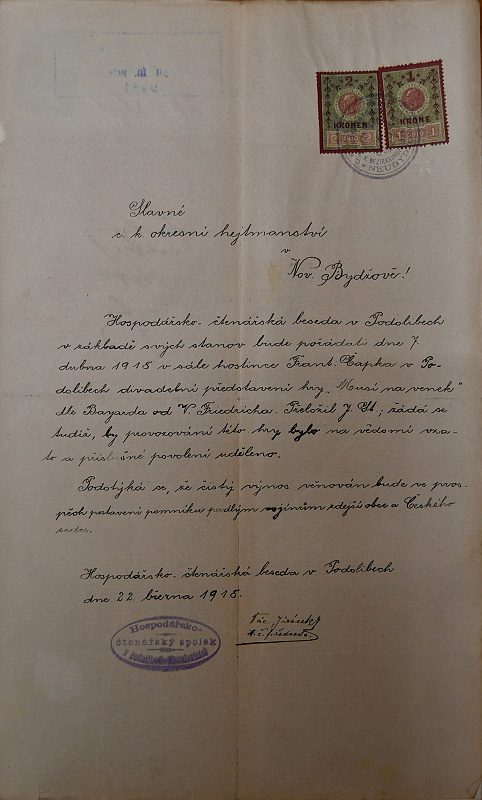 2
KRONEN
2 1910 2
1
KRONE
1 1910 1
NEUBYD
Slavné
c. k. okresní hejtmanství
v
Nov. Bydžově!
Hospodářsko-čtenářská beseda v Podolibech
v základě svých stanov bude pořádati dne 7
dubna 1918 v sále hostince Frant. Čapka v Po-
dolibech divadební představení hry „Musí na venek"
dle Bayarda od V. Friedricha. Přeložil J. St; žádá se
tudíž, by provozování této hry bylo na vědomí vza-
to a příslušné povolení uděleno.
Podotýká se, že čistý výnos věnován bude ve pros-
pěch postavení pomníku padlým vojínům zdejší obce a Českého
srdce.
Hospodářsko-čtenářská beseda v Podolibech
dne 22. března 1918.
Hospodářsko-
čtenářský spolek
Václ. Jirásek
t. č. předseda